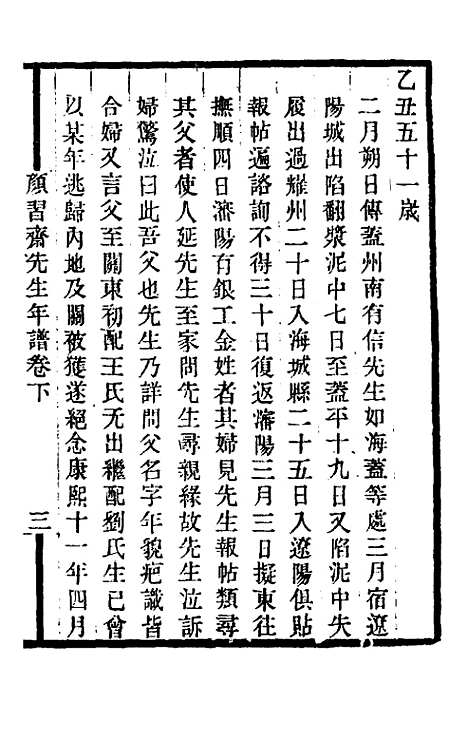 乙丑五十一歲
二月朔日傳蓋州南有信先生如海蓋等處三月宿遼
陽城出陷翻漿泥中七日至蓋平十九日又陷泥中失
履出過耀州二十日入海城縣二十五日入遼陽俱貼
報帖遍諮詢不得三十日復返瀋陽三月三日擬東往
撫順四日瀋陽有銀工金姓者其婦見先生報帖類尋
其父者使人延先生至家問先生尋親緣故先生泣訴
婦驚泣曰此吾父也先生乃詳問父名字年貌疤識皆
合婦又言父至關東初配王氏无出繼配劉氏生已曾
以某年逃歸內地及關被獲遂絕念康熙十一年四月
顏習齋先生年譜卷下
三